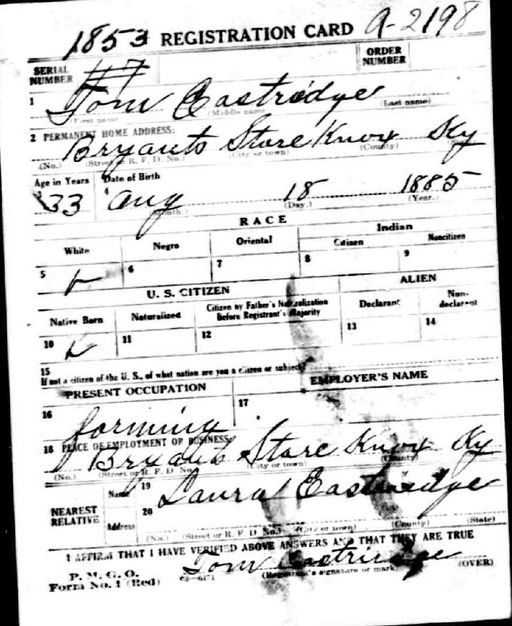 1853 REGISTRATION CARD A-2198
SERIAL NUMBER
ORDER NUMBER
1 Tom Eastridge
(First name) (Middle name) (Last name)
2 PERMANENT HOME ADDRESS:
Bryants Store Knox Ky
(No.) (Street or R. F. D. No.) (City or town) (County) (State)
Age in Years Date of Birth
3 33 4 Aug 18 1885
(Month.) (Day.) (Year.)
RACE
White Negro Oriental Indian
Citizen Noncitizen
5 6 7 8 9
U. S. CITIZEN ALIEN
Native Born Naturalized Citizen by Father's Naturalization Before Registrant's Majority Declarant Non-declarant
10 11 12 13 14
15
If not a citizen of the U. S., of what nation are you a citizen or subject?
PRESENT OCCUPATION EMPLOYER'S NAME
16 farming 17
18 PLACE OF EMPLOYMENT OR BUSINESS:
Bryants Store Knox Ky
(No.) (Street or R. F. D. No.) (City or town) (County)
NEAREST RELATIVE
Name 19 Laura Eastridge
Address 20
(No.) (Street or R. F. D. No.) (City or town) (County) (State)
I AFFIRM THAT I HAVE VERIFIED ABOVE ANSWERS AND THAT THEY ARE TRUE
Tom Eastridge
P. M. G. O.
Form No. 1 (Red) (Registrant's signature or mark) (OVER)